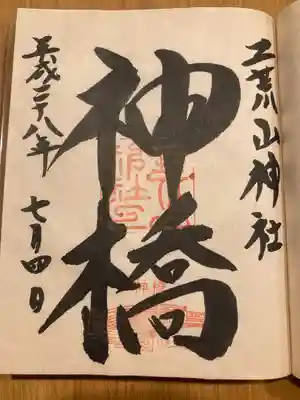 二荒山神社
神橋
平成二十八年 七月四日